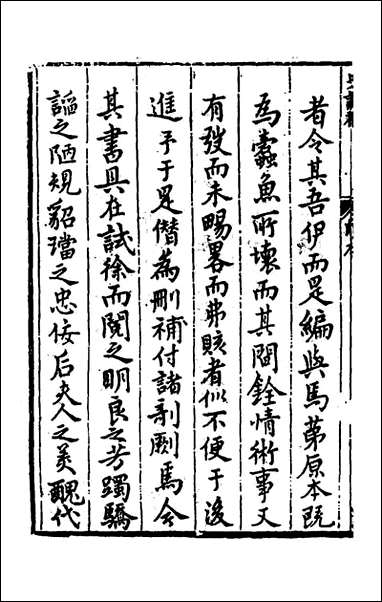 者令其吾伊而是編與馬第原本既
為蠹魚所壞而其間銓情術事又
有發而未暢畧而弗賅者似不便于後
進予于是僭為刪補付諸剞劂焉今
其書具在試徐而閱之明良之芳躅驕
謳之陋規貂璫之忠佞后夫人之美醜代